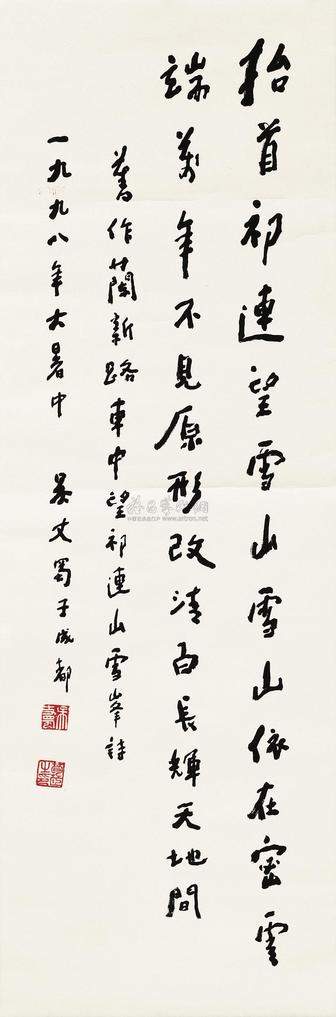 抬首祁連望雪山雪山依在密雲
端萬年不見原形改清白長輝天地間
舊作蘭新路車中望祁連山雪峯詩
一九九八年大暑中 吴丈蜀于成都